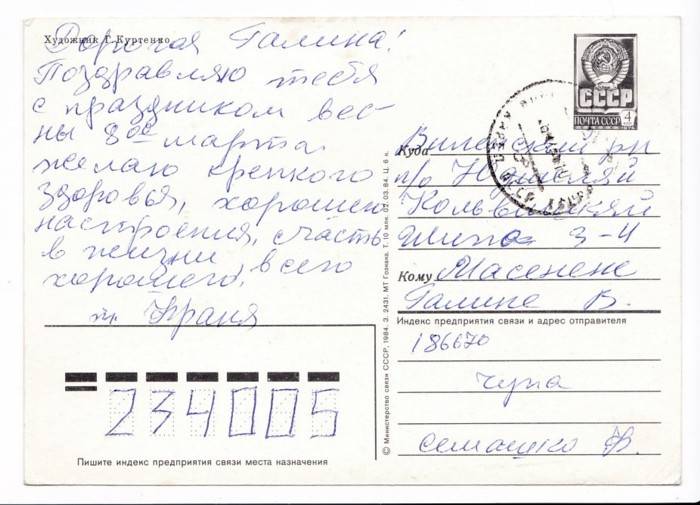 Художник Г. Куртенко
Дорогая Галина!
Поздравляю тебя
с праздником вес-
ны 8ое марта
желаю крепкого
здоровья, хорошего
настроения, счастья
в жизни, всего
хорошего.
Франя
234005
Пишите индекс предприятия связи места назначения
© Министерство связи СССР, 1984. З. 2431. МТ Гознака. Т. 10 млн. 02. 03. 84. Ц. 6 к.
СССР
ПОЧТА СССР 4
Куда
р-н
п/о
3-4
Кому Масенене
Галине В.
Индекс предприятия связи и адрес отправителя
186670
Чупа
Семашко Ф.